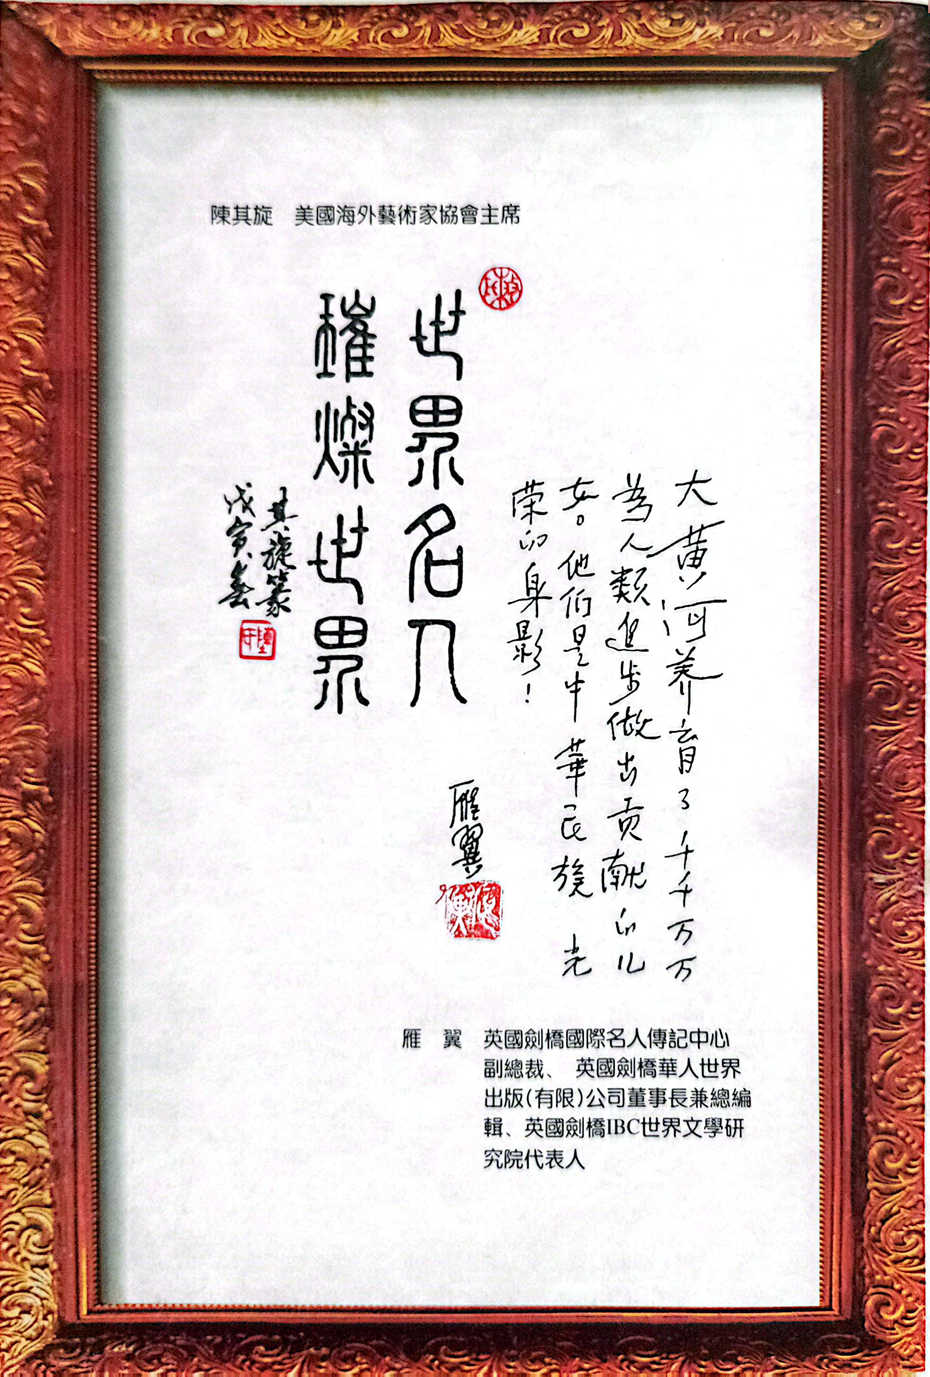 陳其旋　美國海外藝術家協會主席
世界名人
璀燦世界
其旋篆
戊寅春
大黄河养育了千千万万
為人類進步做出贡献的儿
女。他们是中華民族光
荣的身影！
雁翼
雁　翼　英國劍橋國際名人傳記中心
副總裁、英國劍橋華人世界
出版(有限)公司董事長兼總編
輯、英國劍橋IBC世界文學研
究院代表人